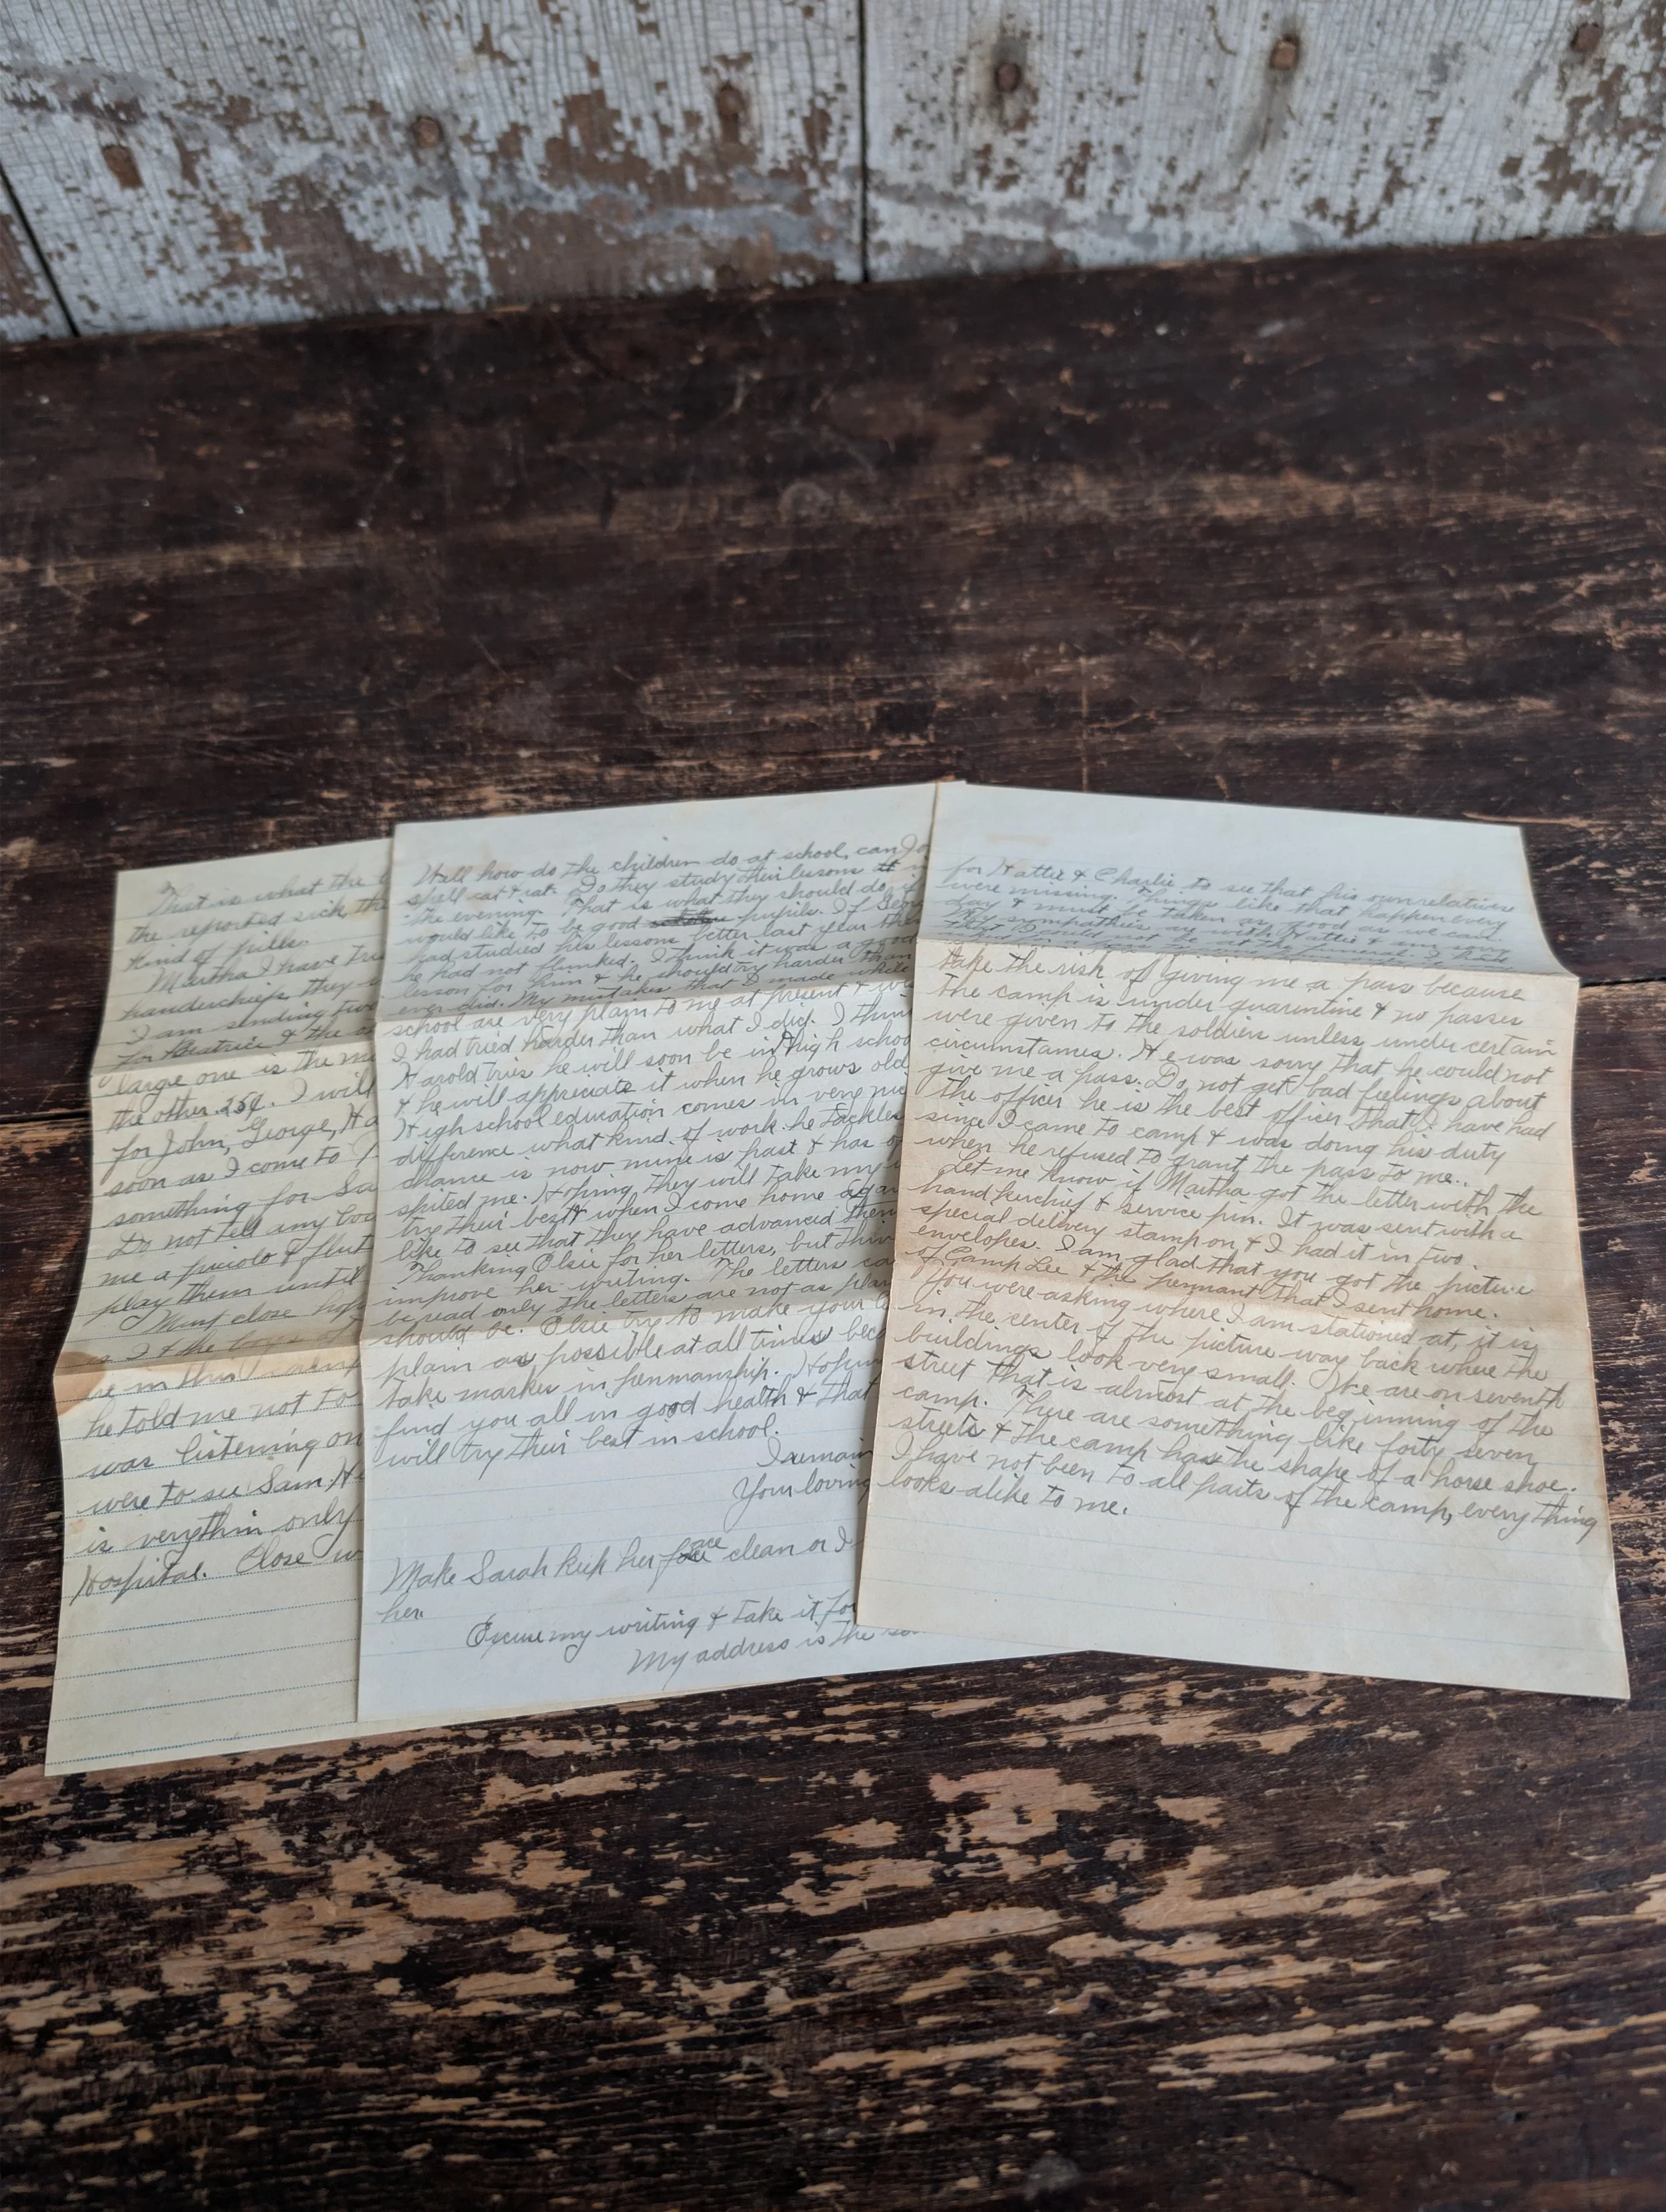 That is what the
the reported sick the
kind of pills.
Martha I have tri
handerchiefs they
I am sending two
for Beatrice & the
large one is the
the other 25¢. I will
for John, George, Ha
soon as I come to
something for Sa
Do not tell any bod
me a picolo & flut
play them until
Must close
is I & the boys
be in this
he told me not to
was listening on
were to see Sam. He
is very thin only
Hospital. Close w
Well how do the children do at school, can Jo
spell cat & rat. Do they study their lessons
the evening. That is what they should do if
would like to be good pupils. If Geor
had studied his lessons better last year the
he had not flunked. I think it was a good
lesson for him & he should try harder than
ever did. My mistakes that I made while
school are very plain to me at present & wi
I had tried harder than what I did. I thin
Harold tries he will soon be in high schoo
& he will appreciate it when he grows old
High school education comes in very nic
difference what kind of work he tackles
chance is now mine is past & has
spited me. Hoping they will take my
try their best & when I come home again
like to see that they have advanced them
Thanking Elsie for her letters, but thin
improve her writing. The letters ca
be read only the letters are not as plai
should be. Elsie try to make your l
plain as possible at all times bec
take marks in penmanship. Hopin
find you all in good health & that
will try their best in school.
I remain
Your loving
Make Sarah keep her face clean or I
her.
Excuse my writing & take it for
My address is the sa
for Hattie & Charlie to see that his own relatives
were missing. Things like that happen every
day & must be taken as good as we can.
My sympathies are with Hattie & am sorry
that I could not be at the funeral. I
take the risk of giving me a pass because
the camp is under quarentine & no passes
were given to the soldiers unless under certain
circumstances. He was sorry that he could not
give me a pass. Do not get bad feelings about
the officer he is the best officer that I have had
since I came to camp & was doing his duty
when he refused to grant the pass to me..
Let me know if Martha got the letter with the
handkerchief & service pin. It was sent with a
special delivery stamp on & I had it in two
envelopes. I am glad that you got the picture
of Camp Lee & the pennant that I sent home.
You were asking where I am stationed at, it is
in the center of the picture way back where the
buildings look very small. We are on seventh
street that is almost at the beginning of the
camp. There are something like forty seven
streets & the camp has the shape of a horse shoe.
I have not been to all parts of the camp, everything
looks alike to me.